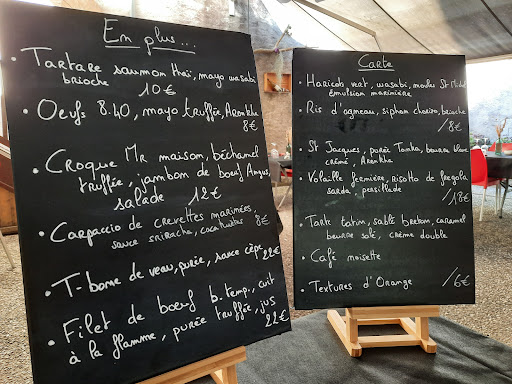 En plus...
• Tartare saumon thaï, mayo wasabi
brioche 10€
• Oeufs 8.40, mayo truffée, Arenkha
8€
• Croque Mr maison, béchamel
truffée, jambon de boeuf Angus,
salade 12€
• Carpaccio de crevettes marinées,
sauce sriracha, cacahuètes 8€
• T-bone de veau, purée, sauce cèpe,
22€
• Filet de boeuf b.temp., cuit
à la flamme, purée truffée, jus
22€
Carte
• Haricot vert, wasabi, moules St Michel
émulsion marinière
• Ris d'agneau, siphon chorizo, brioche
/8€
• St Jacques, purée Tonka, beurre blanc
crémé, Arenkha
• Volaille fermière, risotto de fregola
sarda, persillade
/18€
• Tarte tatin, sablé breton, caramel
beurre salé, crème double
• Café noisette
• Textures d'Orange /6€